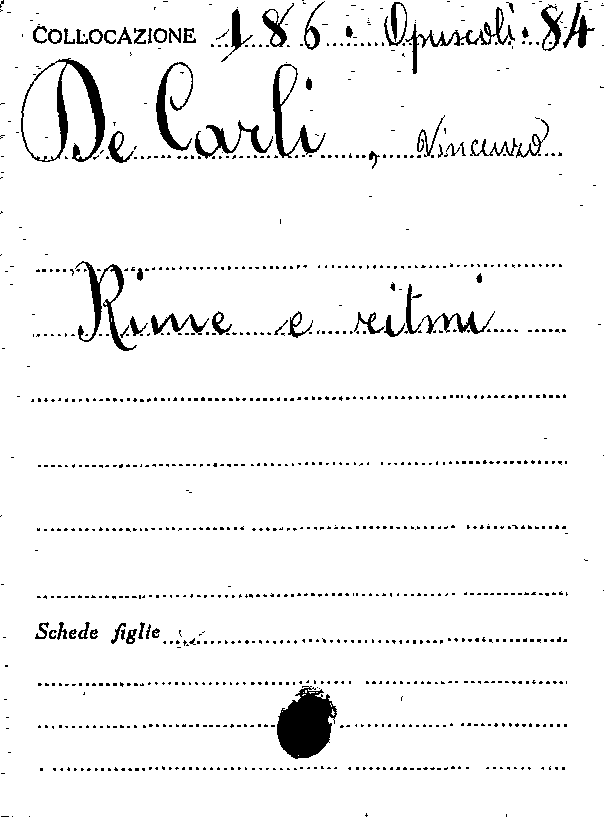 COLLOCAZIONE 186. Opuscoli. 84
De Carli, Vincenzo
Rime e ritmi
Schede figlie